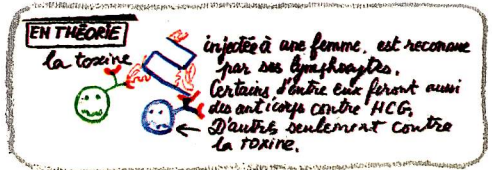 EN THÉORIE
la toxine
injectée à une femme, est reconnue
par ses lymphocytes.
Certains d'entre eux feront aussi
des anticorps contre HCG,
D'autres seulement contre
la toxine.